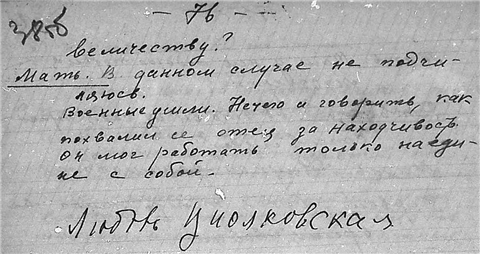 - 76 -
385б
величеству?
Мать. В данном случае не подчи-
нюсь.
Военные ушли. Нечего и говорить, как
похвалил ее отец за находчивость.
Он мог работать только наеди-
не с собой.
Любовь Циолковская